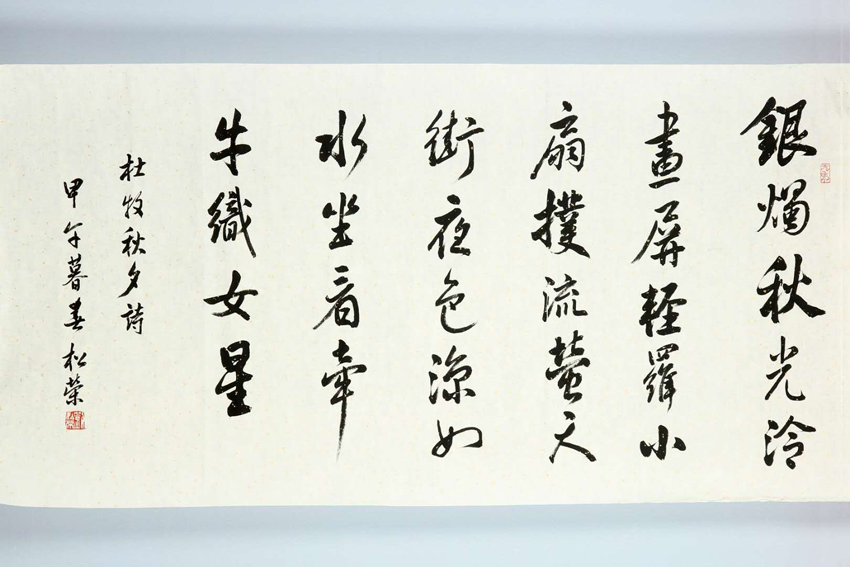 銀燭秋光泠
畫屏輕羅小
扇撲流螢天
街夜色涼如
水坐看牽
牛織女星
杜牧秋夕詩
甲午暮春松榮